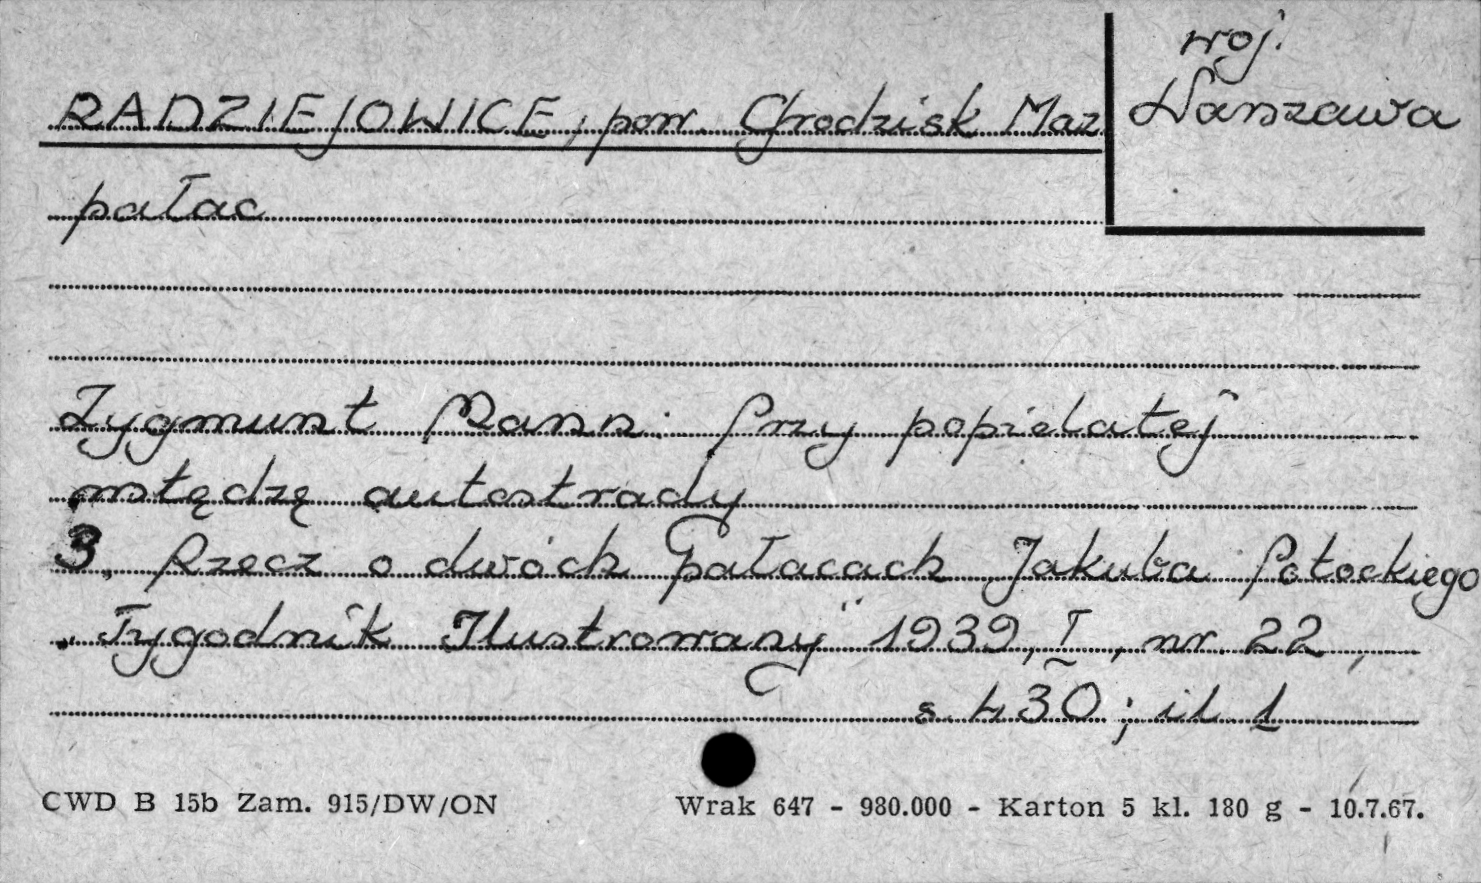 woj.
Warszawa
RADZIEJOWICE, pow. Grodzisk Maz.
pałac
Zygmunt Mann: Przy popielatej
wstędzę autostrady
3. Rzecz o dwóch pałacach Jakuba Potockiego
„Tygodnik Ilustrowany" 1939, I, nr. 22,
s. 430; il 1
CWD B 15b Zam. 915/DW/ON
Wrak 647 - 980.000 - Karton 5 kl. 180 g - 10.7.67.